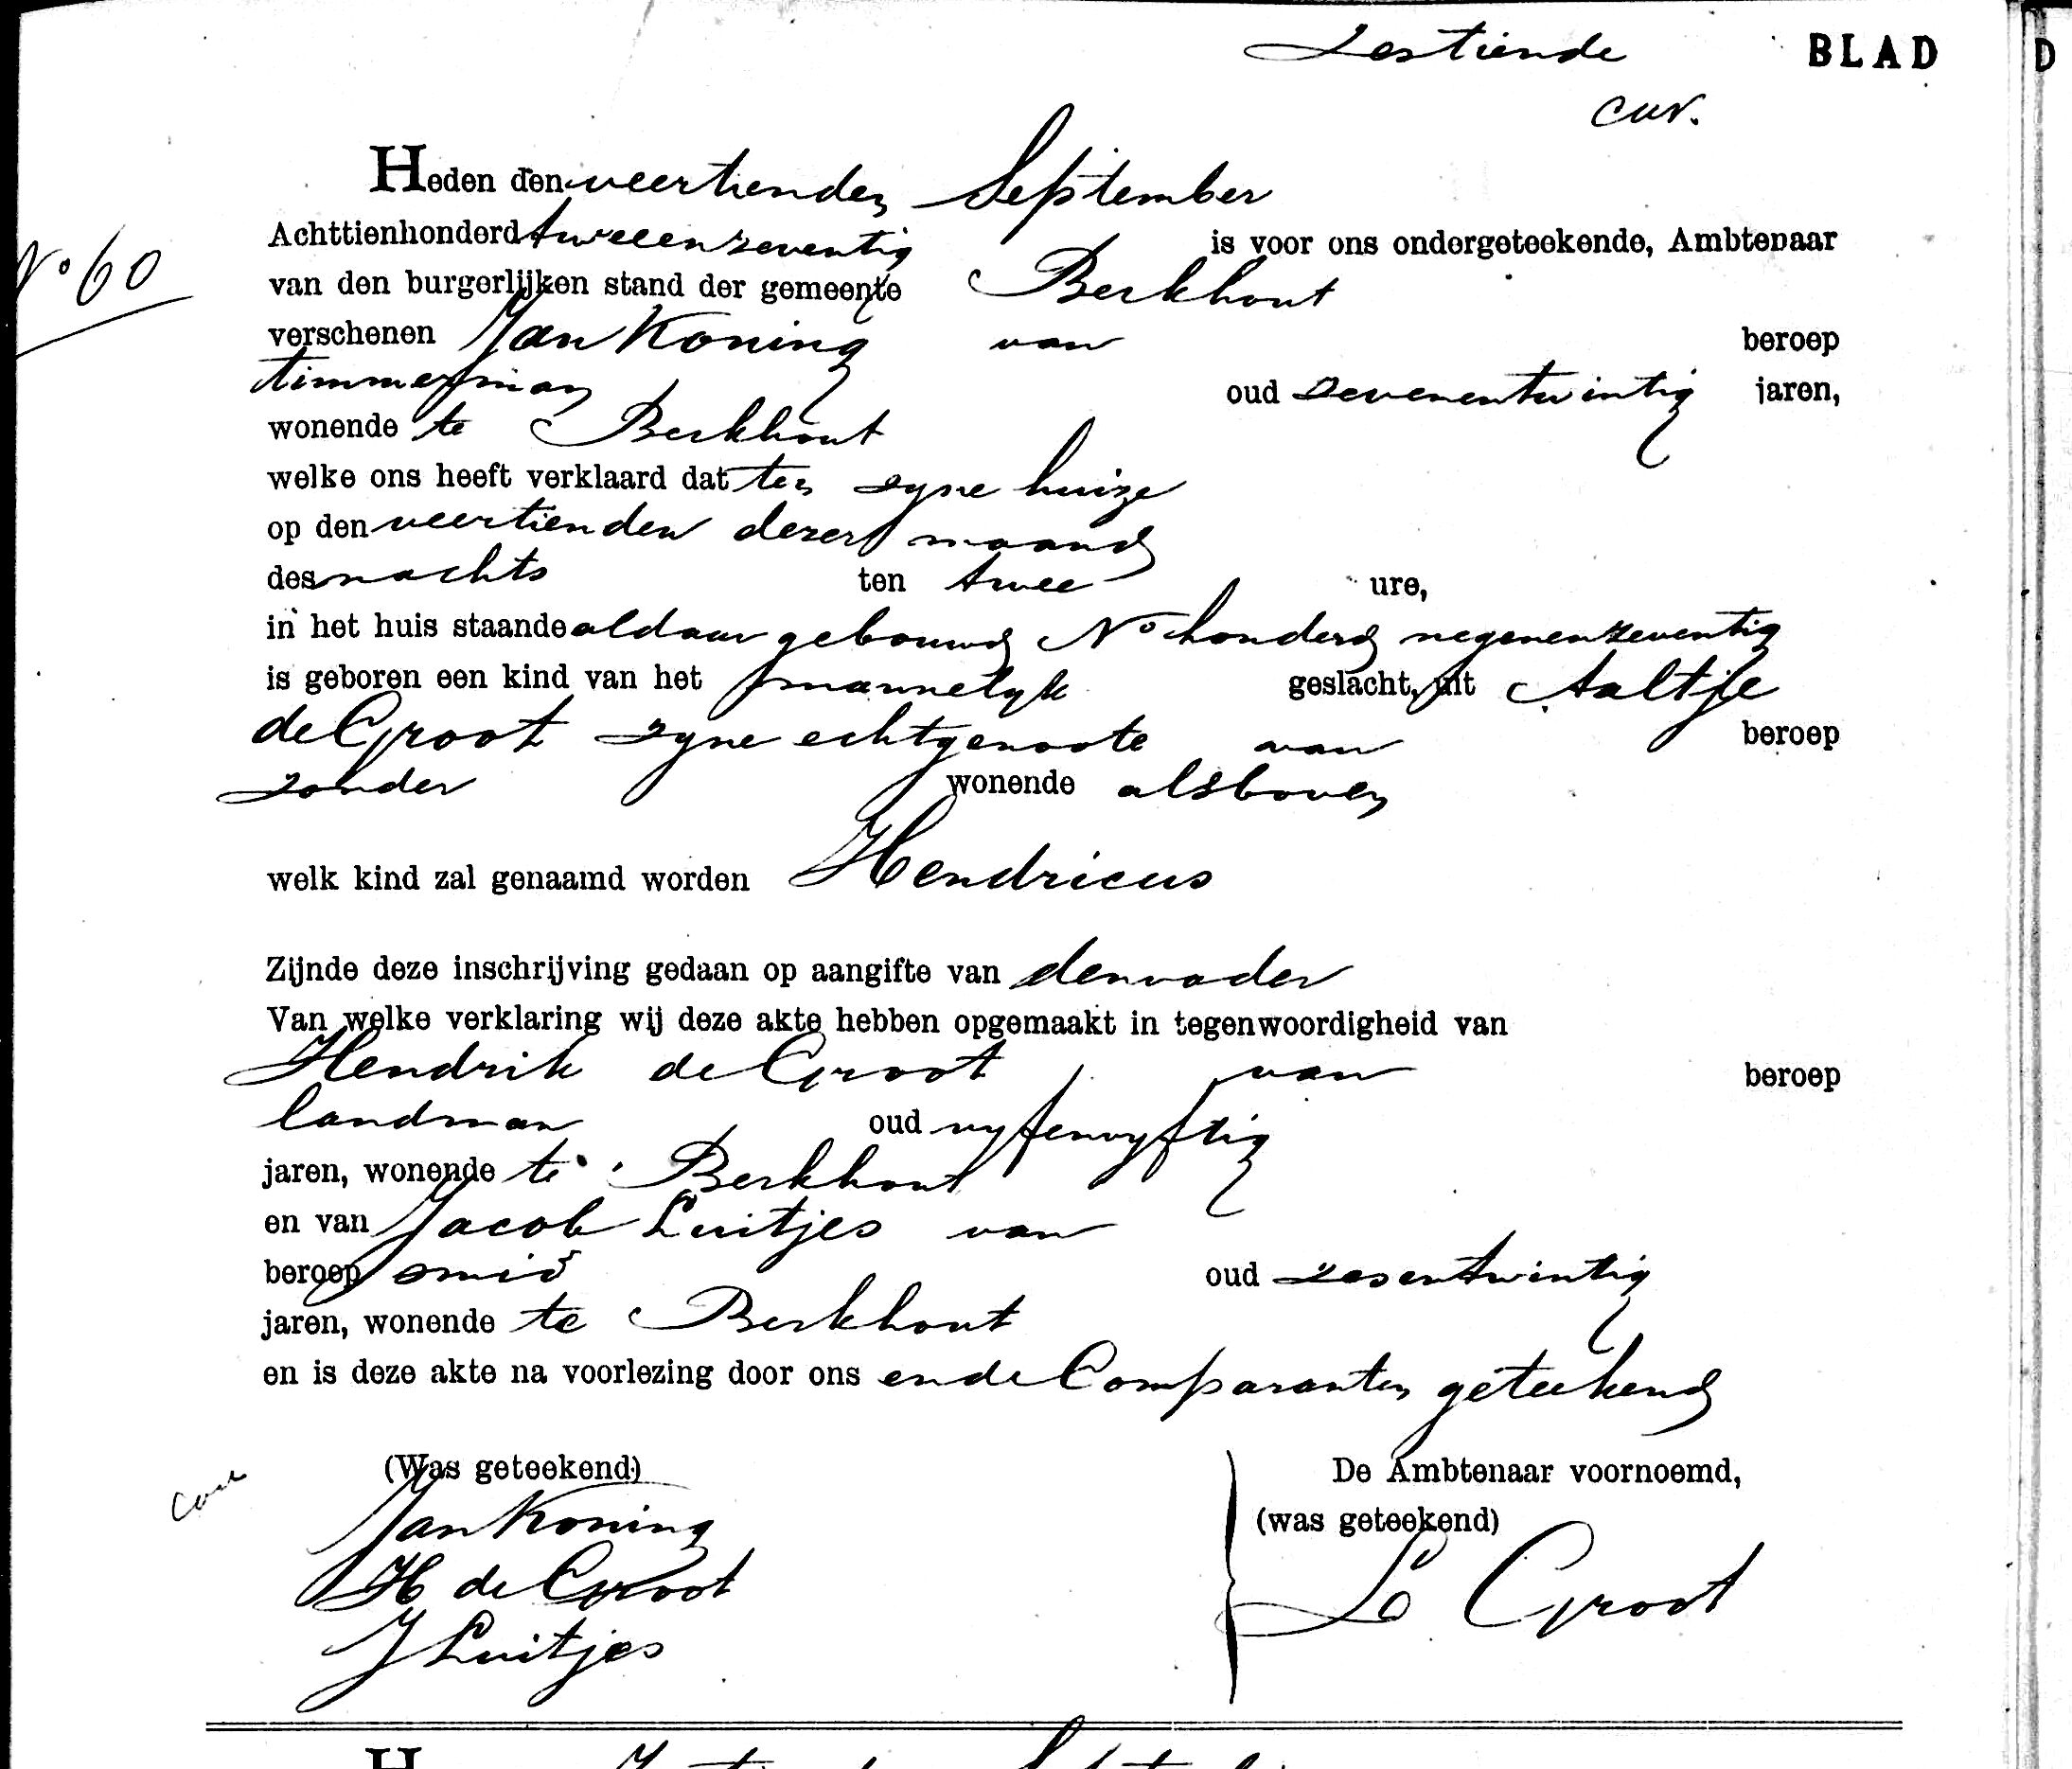 Zestiende BLAD
Heden den veertienden September
No 60
Achttienhonderd tweeenzeventig is voor ons ondergeteekende, Ambtenaar
van den burgerlijken stand der gemeente Berkhout
verschenen Jan Koning van beroep
timmerman oud zevenentwintig jaren,
wonende te Berkhout
welke ons heeft verklaard dat ten zyne huize
op den veertienden dezer maand
des nachts ten twee ure,
in het huis staande aldaar gebouwd No honderd negenenzeventig
is geboren een kind van het mannelyk geslacht, uit Aaltje
de Groot zyne echtgenoote van beroep
zonder wonende alsboven
welk kind zal genaamd worden Hendricus
Zijnde deze inschrijving gedaan op aangifte van den vader
Van welke verklaring wij deze akte hebben opgemaakt in tegenwoordigheid van
Hendrik de Groot van beroep
landman oud vyfenvyftig
jaren, wonende te Berkhout
en van Jacob Luitjes van
beroep smid oud zesentwintig
jaren, wonende te Berkhout
en is deze akte na voorlezing door ons en de Comparanten geteekend
(Was geteekend) De Ambtenaar voornoemd,
Jan Koning (was geteekend)
H de Groot Groot
J Luitjes